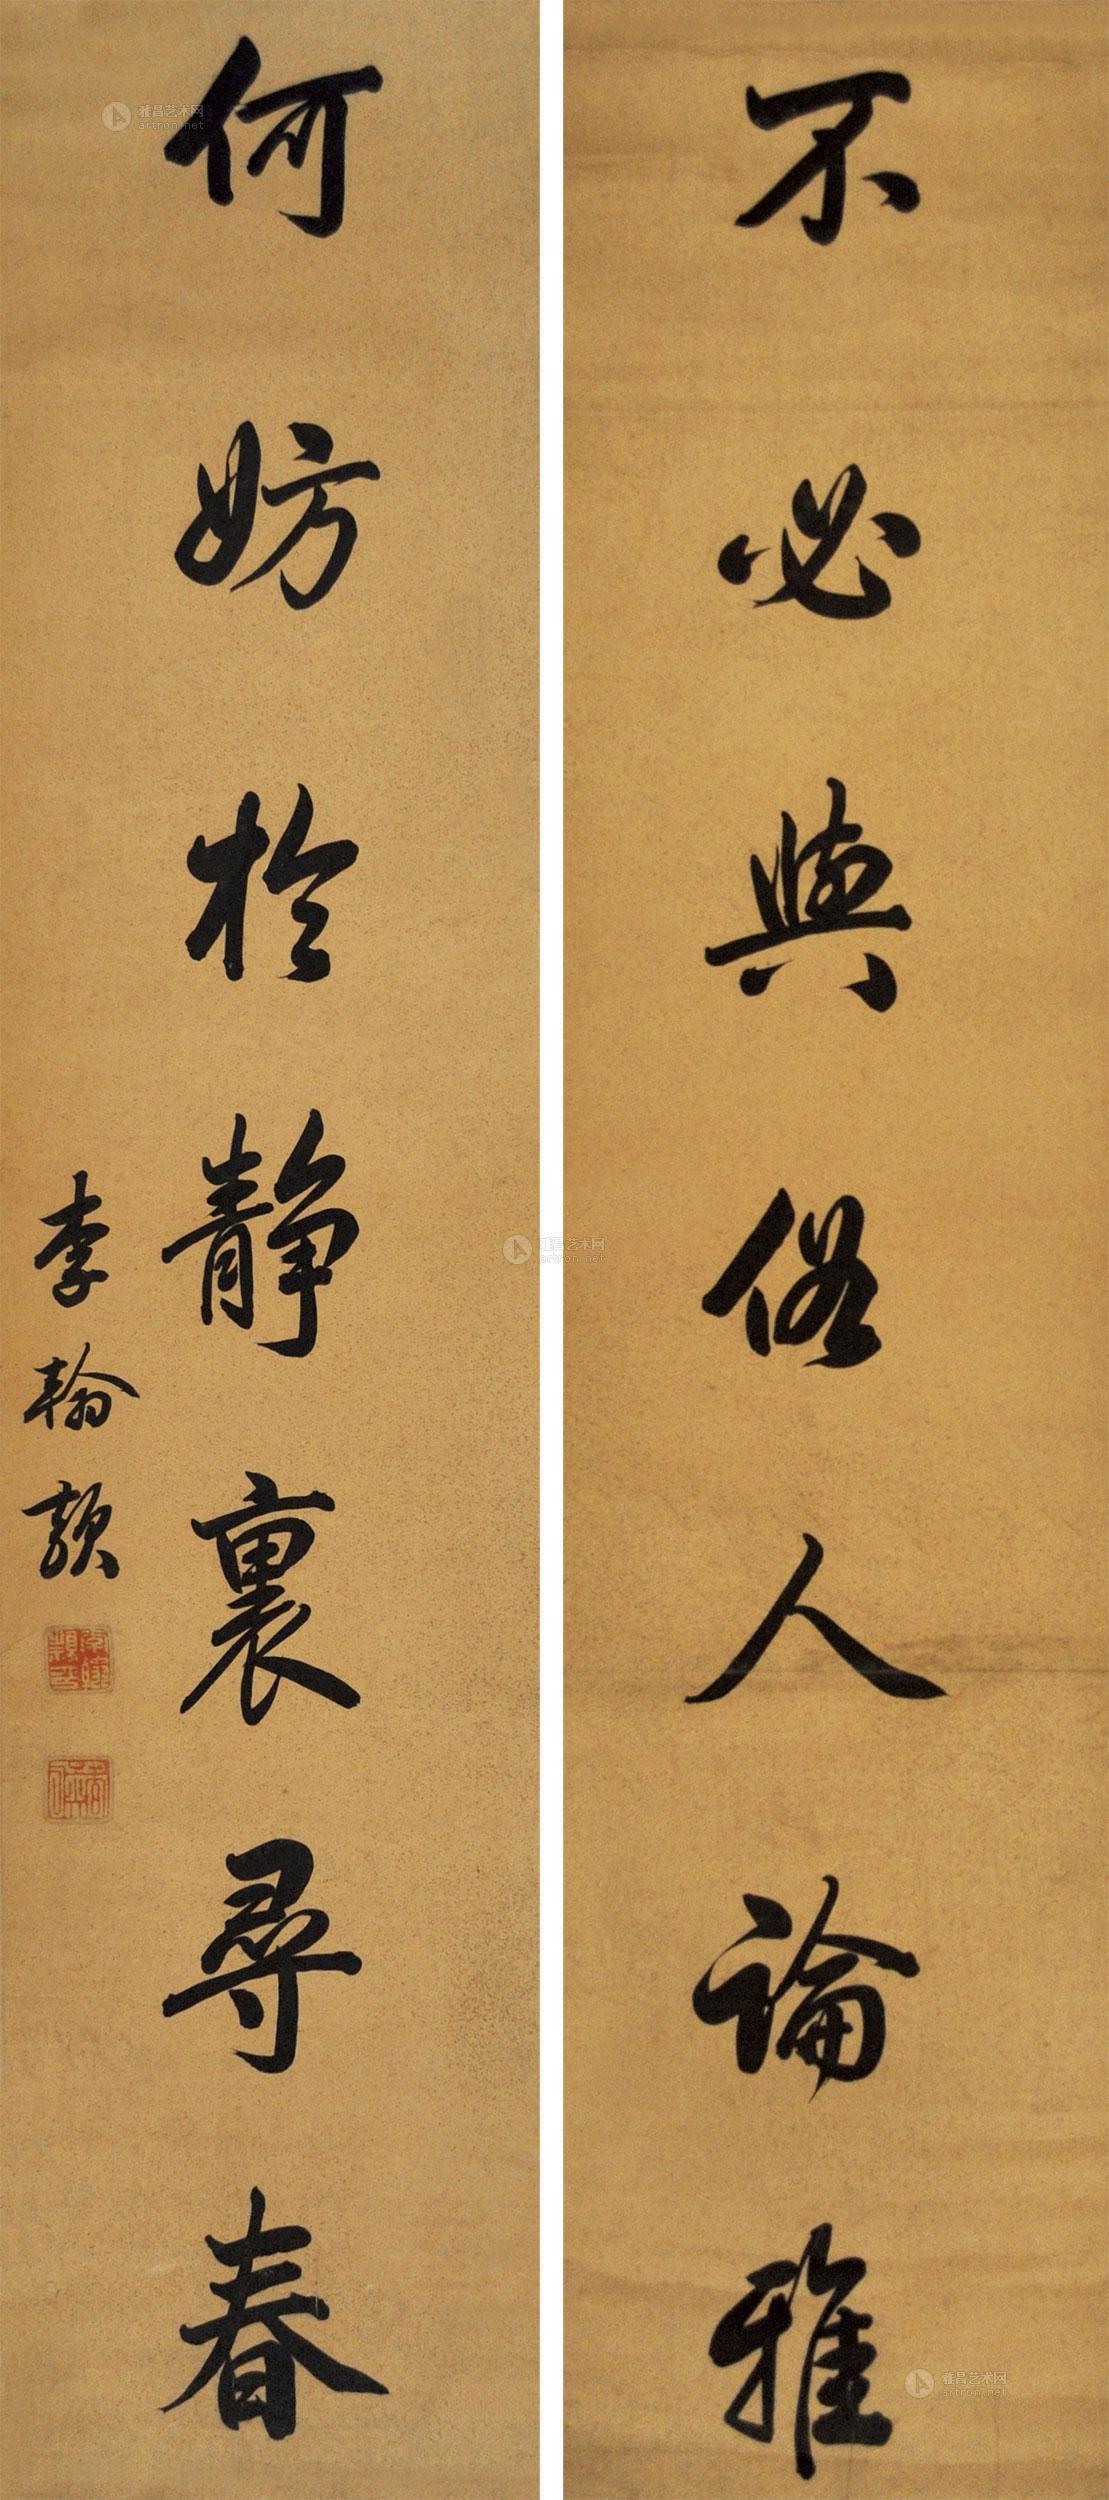 不必與俗人論雅
何妨於靜裏尋春
李翰穎
雅昌艺术网
artron.net
雅昌艺术网
artron.net
雅昌艺术网
artron.net